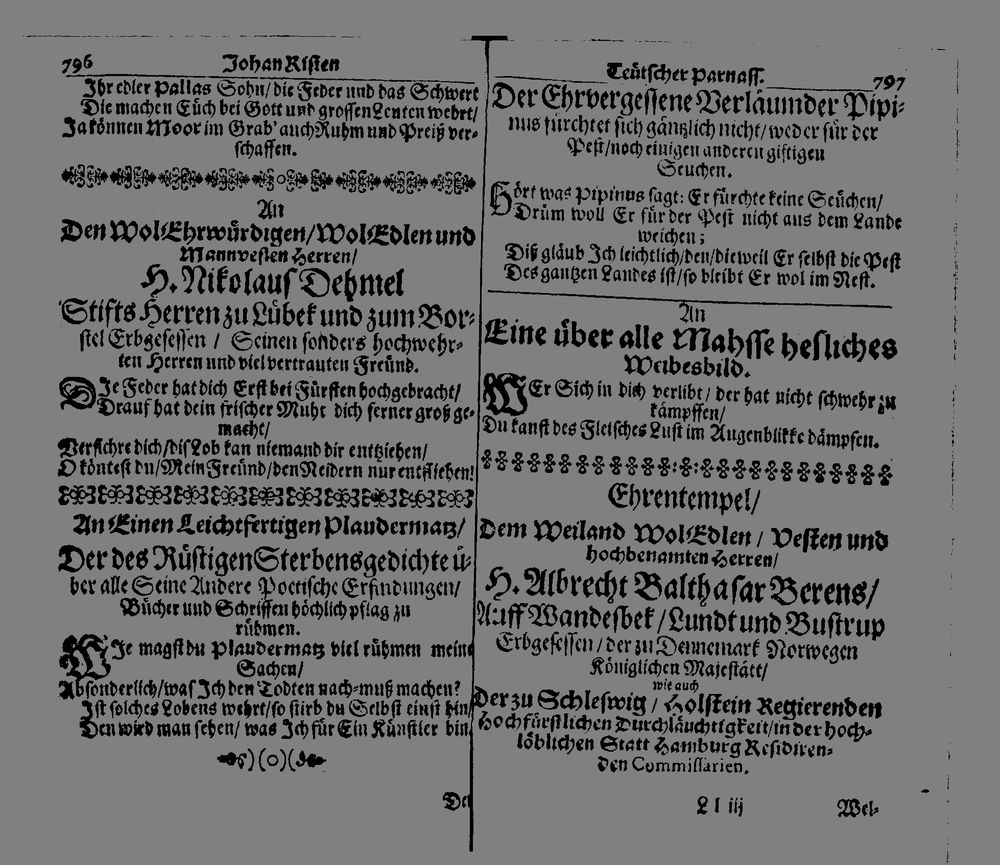 796
Johan Risten
Ihr edler Pallas Sohn/ die Feder und das Schwert
Die machen Eüch bei Gott und grossen Leuten wehrt/
Ja können Moor im Grab' auch Ruhm und Preiß ver-
schaffen.
An
Den WolEhrwürdigen/ WolEdlen und
Mannvesten Herren/
H. Nikolaus Dehmel
Stifts Herren zu Lübek und zum Bor-
stel Erbgesessen / Seinen sonders hochwehr-
ten Herren und viel vertrauten Freünd.
DIe Feder hat dich Erst bei Fürsten hochgebracht/
Drauf hat dein frischer Muht dich ferner groß ge-
macht/
Versichre dich/ dis Lob kan niemand dir entziehen/
O köntest du/ Mein Freünd/ den Neidern nur entfliehen!
An Einen Leichtfertigen Plaudermatz/
Der des Rüstigen Sterbensgedichte ü-
ber alle Seine Andere Poetische Erfindungen/
Bücher und Schriften höchlich pflag zu
rühmen.
WIe magst du Plaudermatz viel rühmen meine
Sachen/
Absonderlich/ was Ich den Todten nach-muß machen?
Ist solches Lobens wehrt/ so stirb du Selbst einst hin
Den wird man sehen/ was Ich für Ein Künstler bin
)(o)(
Der
Teütscher Parnass.
797
Der Ehrvergessene Verläumder Pipi-
nus fürchtet sich gäntzlich nicht/ weder für der
Pest/ noch einigen anderen giftigen
Seuchen.
Hört was Pipinus sagt: Er fürchte keine Seüchen/
Drüm woll Er für der Pest nicht aus dem Lande
weichen;
Diß gläub Ich leichtlich/ den/ dieweil Er selbst die Pest
Des gantzen Landes ist/ so bleibt Er wol im Nest.
An
Eine über alle Mahsse hesliches
Weibesbild.
WEr Sich in dich verlibt/ der hat nicht schwehr zu
kämpffen/
Du kanst des Fleisches Lust im Augenblikke dämpfen.
Ehrentempel/
Dem Weiland WolEdlen / Vesten und
hochbenamten Herren/
H. Albrecht Balthasar Berens/
Auff Wandesbek/ Lundt und Bustrup
Erbgesessen/ der zu Dennemark Norwegen
Königlichen Majestätt/
wie auch
Der zu Schleswig / Holstein Regierenden
Hochfürstlichen Durchläuchtigkeit/ in der hoch-
löblichen Statt Hamburg Residiren-
den Commissarien.
L l iij
Wel-